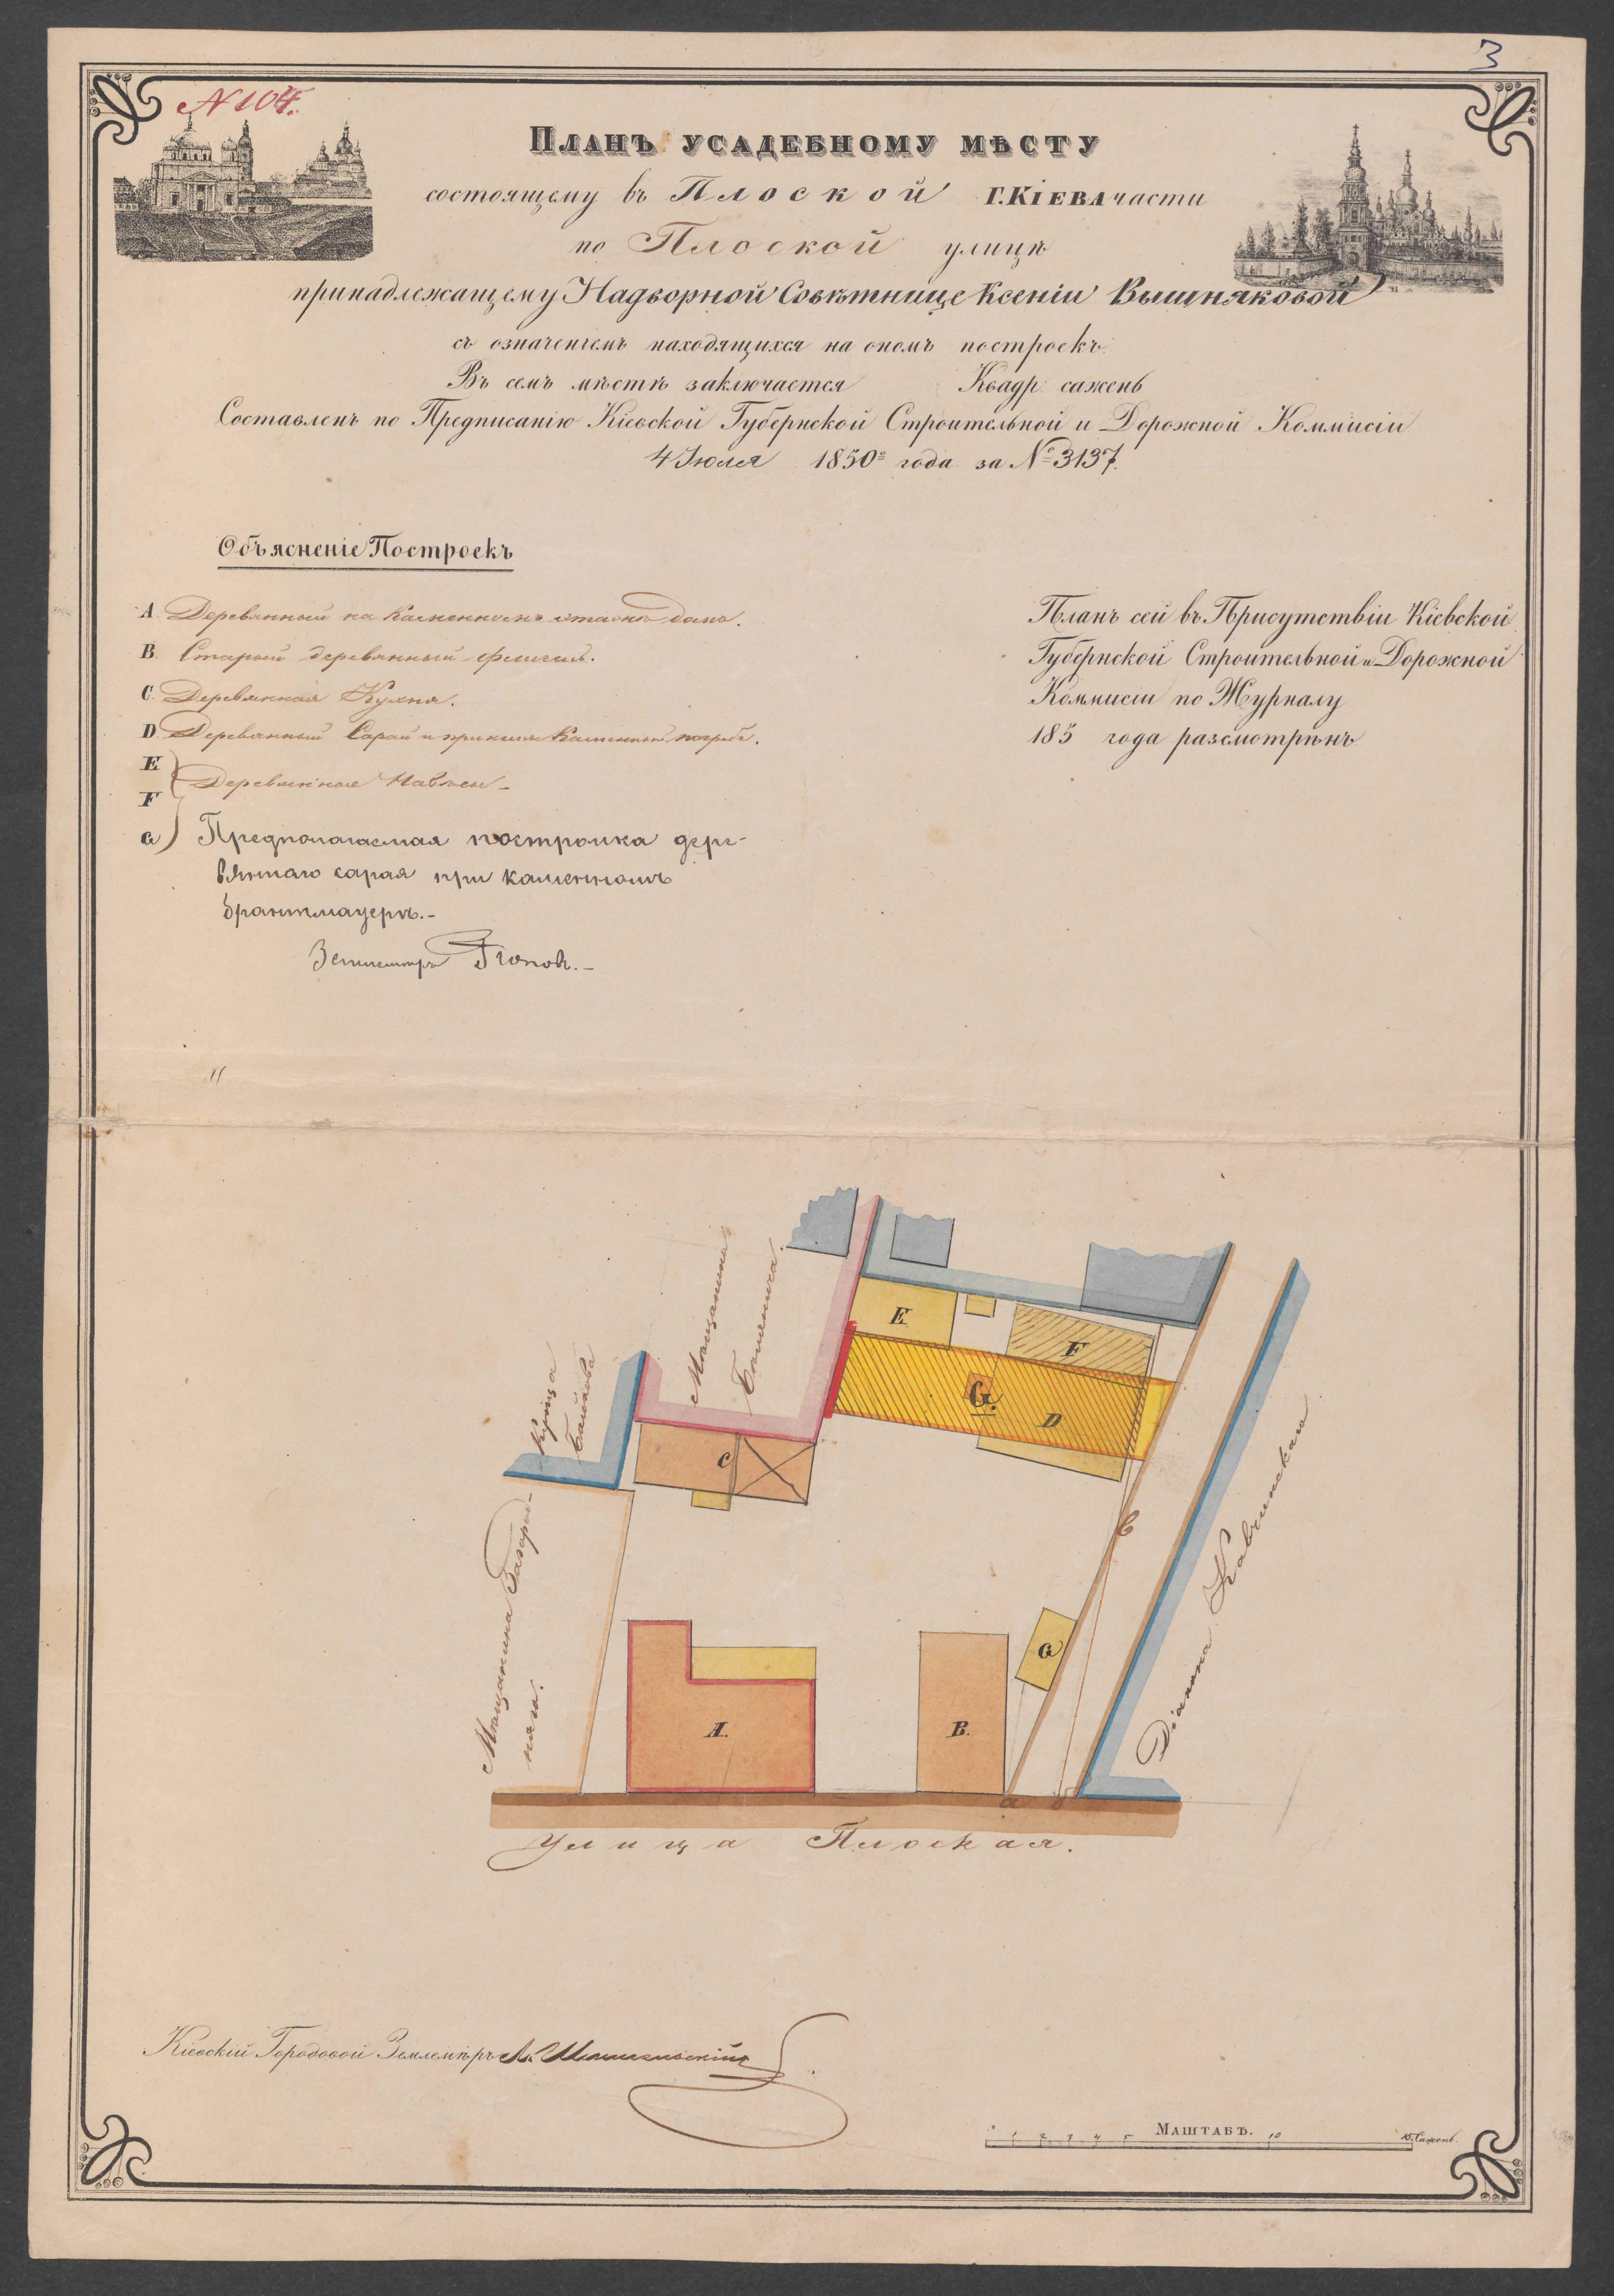 3
N 104.
Планъ усадебному мѣсту
состоящему въ Плоской Г. Кіева части
по Плоской улицѣ
принадлежащему Надворной Совѣтнице Ксеніи Вышняковой
съ означеніемъ находящихся на ономъ построекъ.
Въ семъ мѣстѣ заключается Квадр. сажень
Составленъ по Предписанію Кіевской Губернской Строительной и Дорожной Коммисіи
4 Іюля 1850го года за № 3137.
Объясненіе Построекъ
A. Деревянный на Каменномъ этажѣ домъ.
B. Старый деревянный флигель.
C. Деревянная Кухня.
D. Деревянный Сарай и Каменный погребъ.
E
F Деревянные Навѣсы
G Предполагаемая постройка дере-
вяннаго сарая при каменномъ
брантмауерѣ.
Землемѣръ
Планъ сей въ Присутствіи Кіевской
Губернской Строительной и Дорожной
Коммисіи по Журналу
185 года разсмотрѣнъ
Мѣщанина
Купца
E.
F
G.
D
C
в
Мѣщанина
G
A.
B.
Діакона
а б
Улица Плоская.
Кіевскій Городовой Землемѣръ
Маштабъ.
1 2 3 4 5 10 15 Сажень.